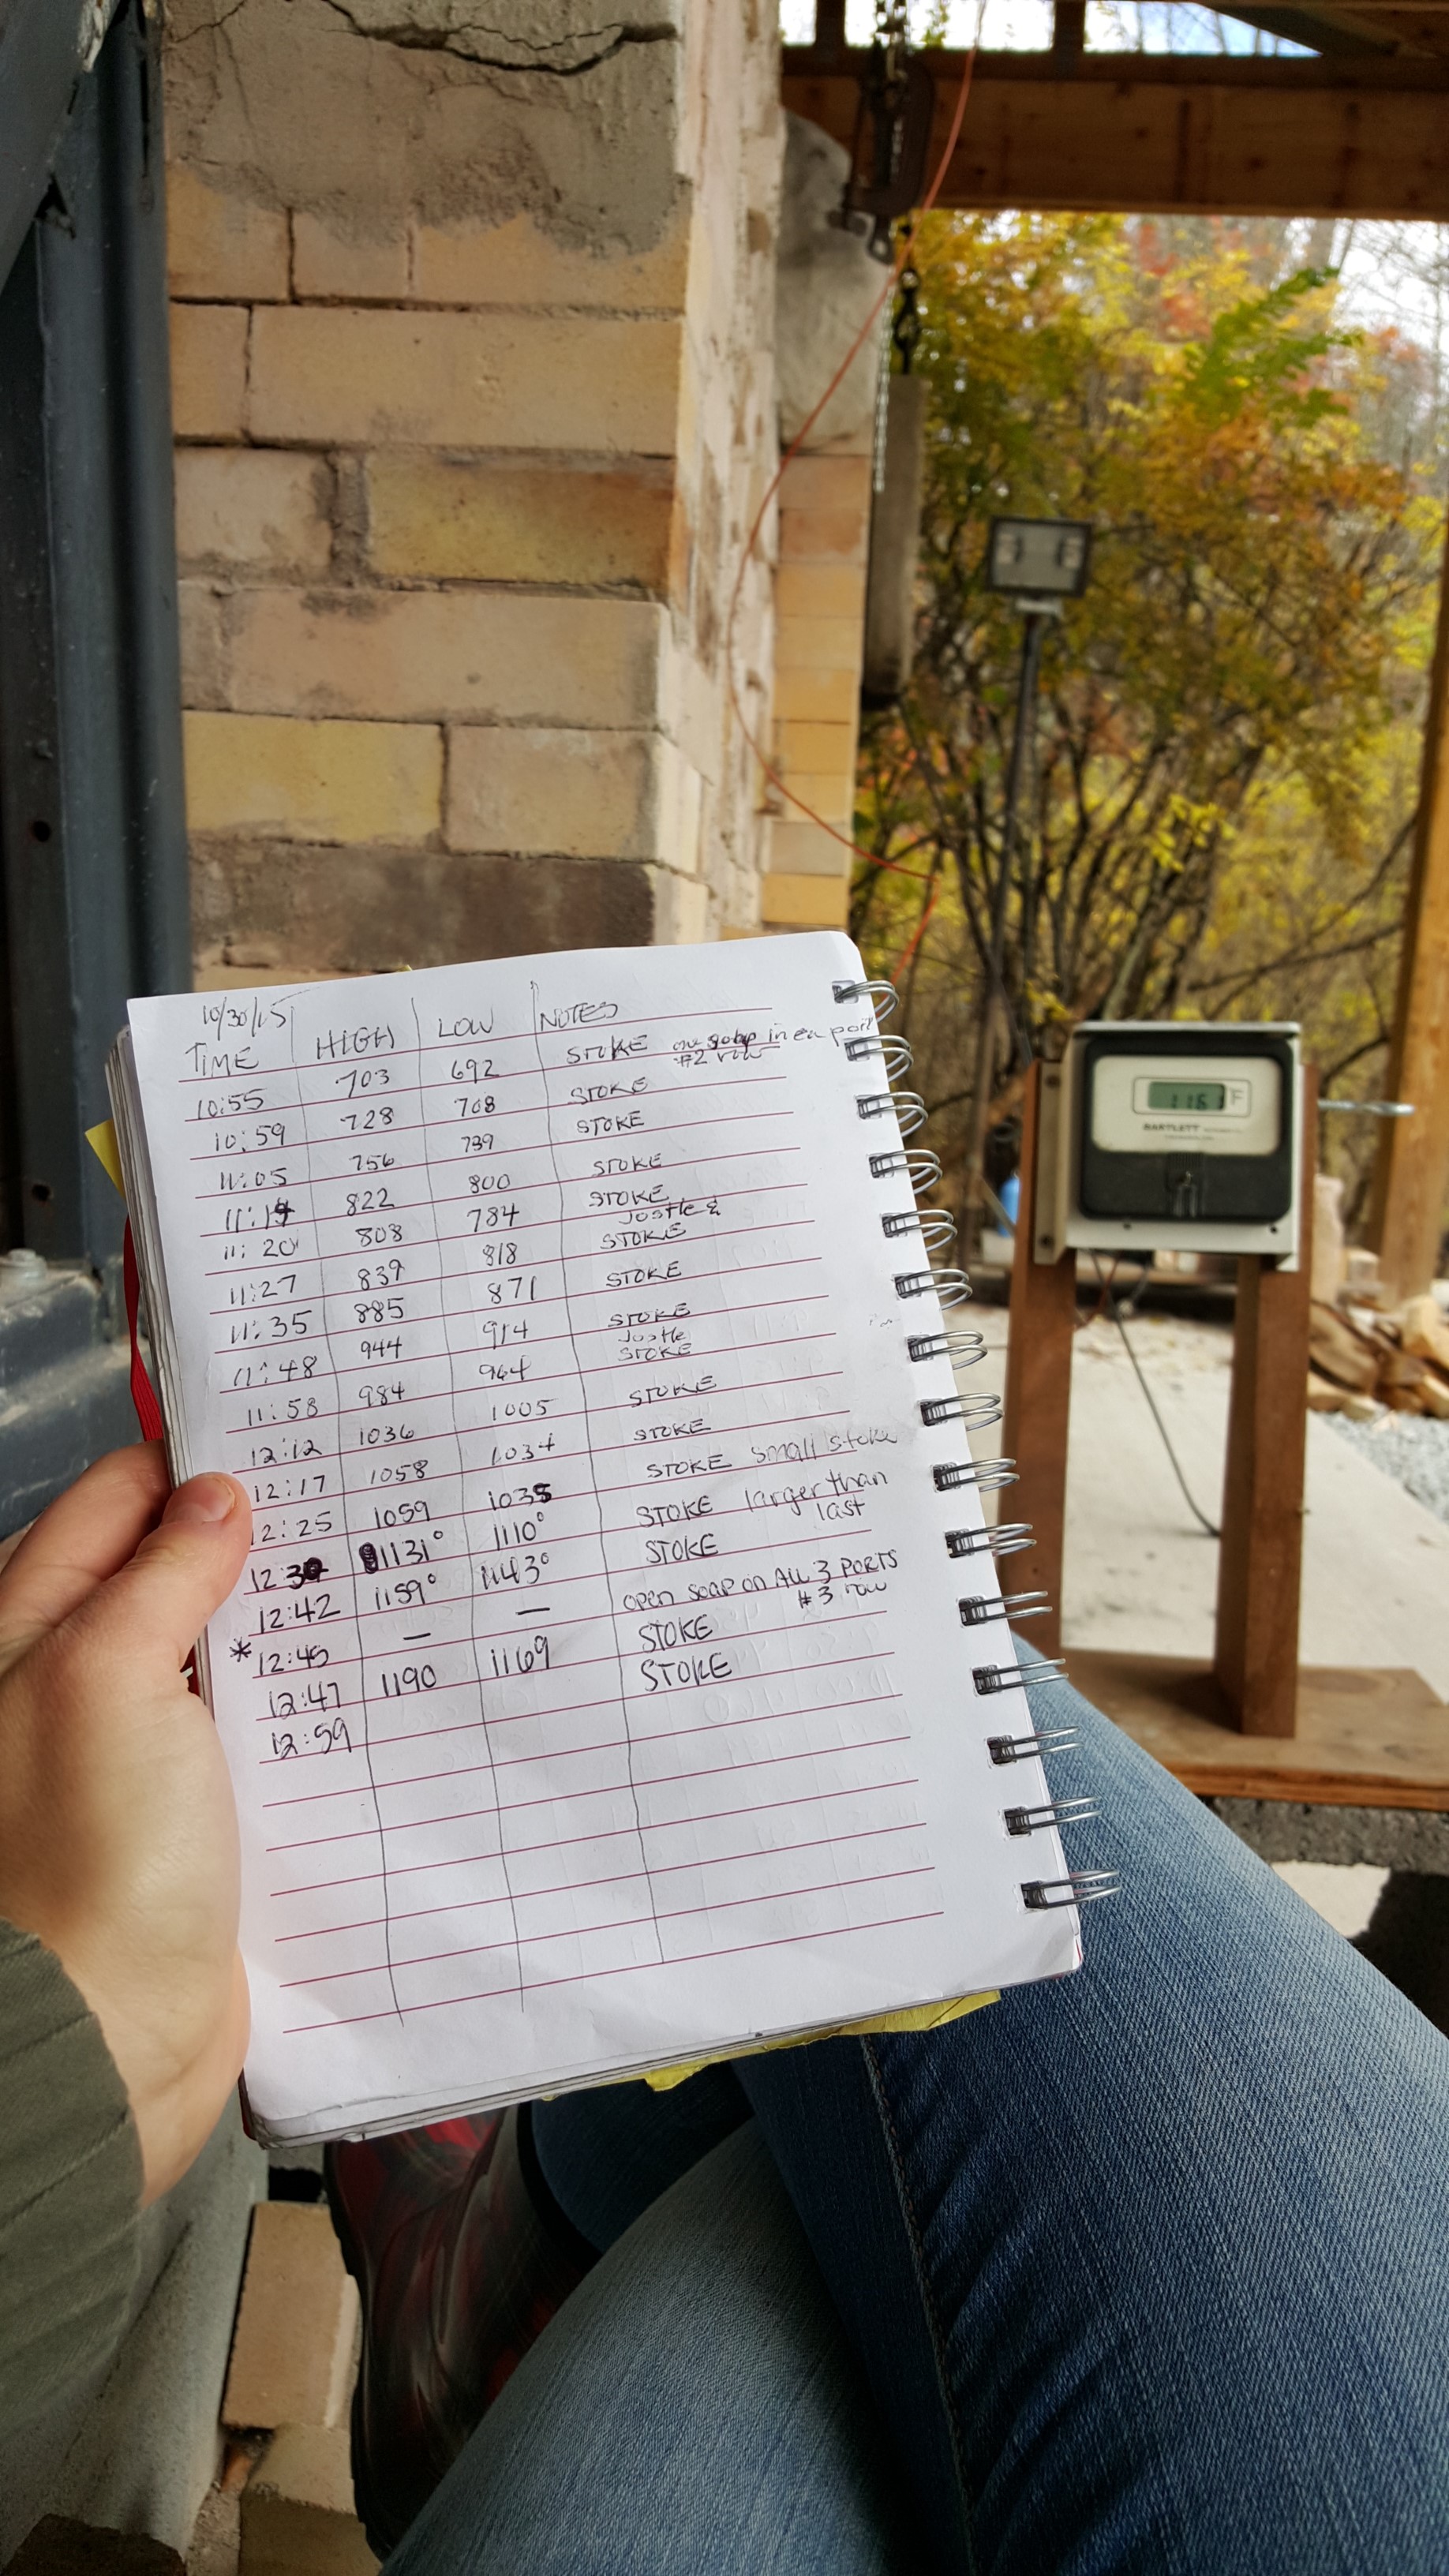 10/30/15
TIME HIGH LOW NOTES
10:55 703 692 STOKE one soap in ea port
#2 row
10:59 728 708 STOKE
11:05 756 739 STOKE
11:14 822 800 STOKE
11:20 808 784 STOKE
11:27 839 818 Jostle &
STOKE
11:35 885 871 STOKE
11:48 944 914 STOKE
11:58 984 964 Jostle
STOKE
12:12 1036 1005 STOKE
12:17 1058 1034 STOKE
12:25 1059 1035 STOKE small stoke
1131° 1110° STOKE larger than
last
12:42 1159° 1143° STOKE
* 12:45 — — open soap on ALL 3 PORTS
#3 row
12:47 1190 1169 STOKE
12:59 STOKE
1161 F
BARTLETT